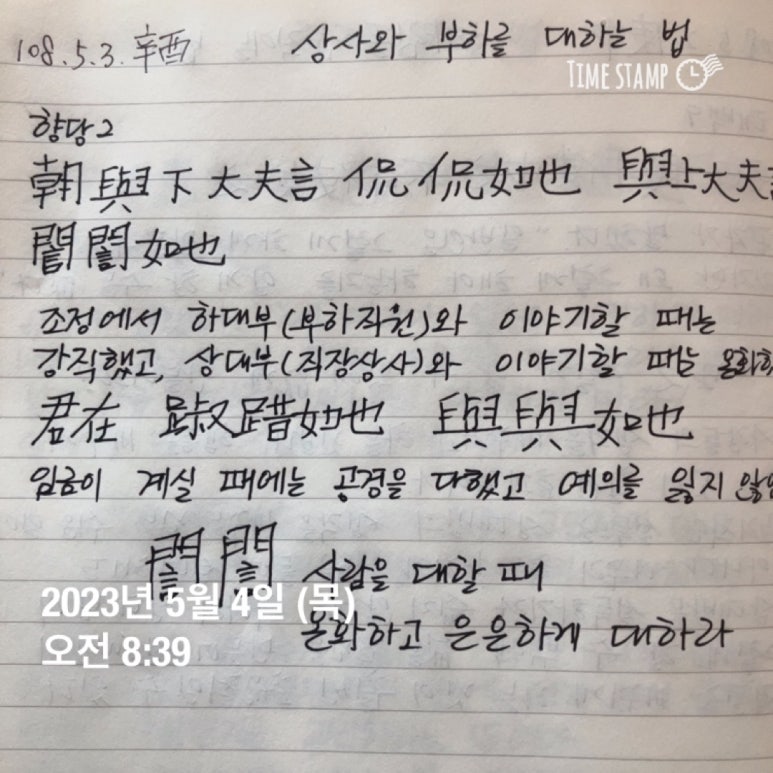 108.5.3. 辛酉 상사와 부하를 대하는 법
TIME STAMP
향당2
朝與下大夫言 侃侃如也 與上大夫言
誾誾如也
조정에서 하대부(부하직원)와 이야기할 때는
강직했고, 상대부(직장상사)와 이야기할 때는 온화하
君在 踧踖如也 與與如也
임금이 계실 때에는 공경을 다했고 예의를 잃지 않
誾誾 사람을 대할 때
2023년 5월 4일 (목)
온화하고 은은하게 대하라
오전 8:39